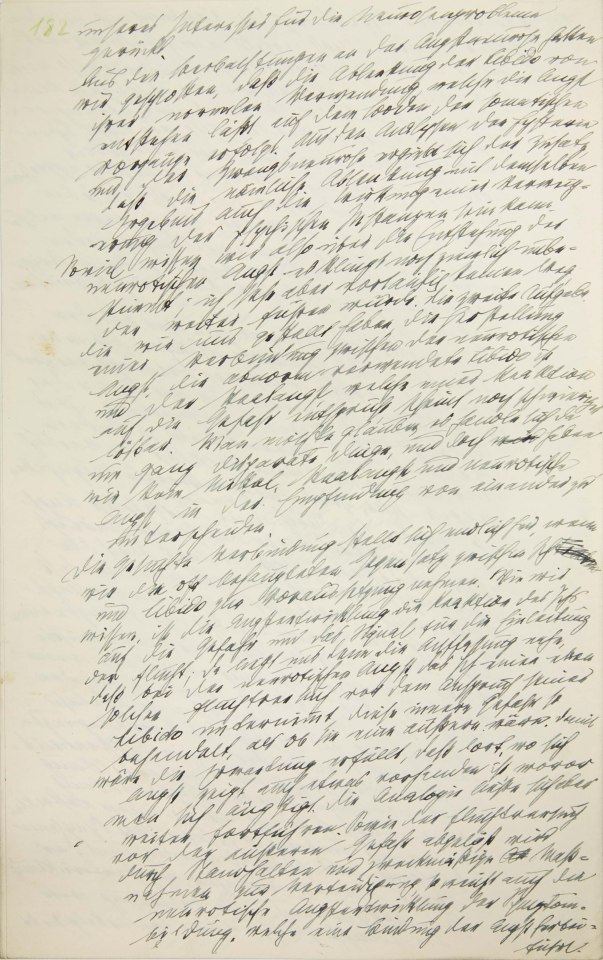 182 unseres Interesses für die Neurosenprobleme
gerückt.
Aus den Beobachtungen an der Angstneurose haben
wir geschlossen, daß die Ablenkung der Libido von
ihrer normalen Verwendung, welche die Angst
entstehen läßt, auf dem Boden der somatischen
Vorgänge erfolgt. Aus den Analysen der Hysterie
und der Zwangsneurose ergiebt sich der Zusatz,
daß die nämliche Ablenkung mit demselben
Ergebnis auch die Wirkung einer Verweige-
rung der psychischen Instanzen sein kann.
Soviel wissen wir also über die Entstehung der
neurotischen Angst, es klingt noch ziemlich unbe-
stimmt; ich sehe aber vorläufig keinen Weg
der weiter führen würde. Die zweite Aufgabe
die wir uns gestellt haben, die Herstellung
einer Verbindung zwischen der neurotischen
Angst, die abnorm verwendete Libido ist
und der Realangst, welche einer Reaktion
auf die Gefahr entspricht, scheint noch schwieriger
lösbar. Man möchte glauben, es handle sich da
um ganz disparate Dinge, und doch haben
wir kein Mittel, Realangst und neurotische
Angst in der Empfindung von einander zu
unterscheiden.
Die gesuchte Verbindung stellt sich endlich her, wenn
wir den oft behaupteten Gegensatz zwischen Ich
und Libido zur Voraussetzung nehmen. Wie wir
wissen, ist die Angstentwicklung die Reaktion des Ichs
auf die Gefahr und das Signal für die Einleitung
der Flucht; da liegt uns denn die Auffassung nahe,
daß bei der neurotischen Angst das Ich einen eben
solchen Fluchtversuch vor dem Anspruch seiner
Libido unternimmt, diese innere Gefahr so
behandelt, als ob sie eine äußere wäre. Damit
wäre die Erwartung erfüllt, daß dort, wo sich
Angst zeigt auch etwas vorhanden ist, wovor
man sich ängstigt. Die Analogie ließe sich aber
weiter fortführen. Sowie der Fluchtversuch
vor der äußeren Gefahr abgelöst wird
durch Standhalten und zweckmäßige Maß-
nahmen zur Verteidigung, so weicht auch die
neurotische Angstentwicklung der Symptom-
bildung, welche eine Bindung der Angst herbei-
führt.